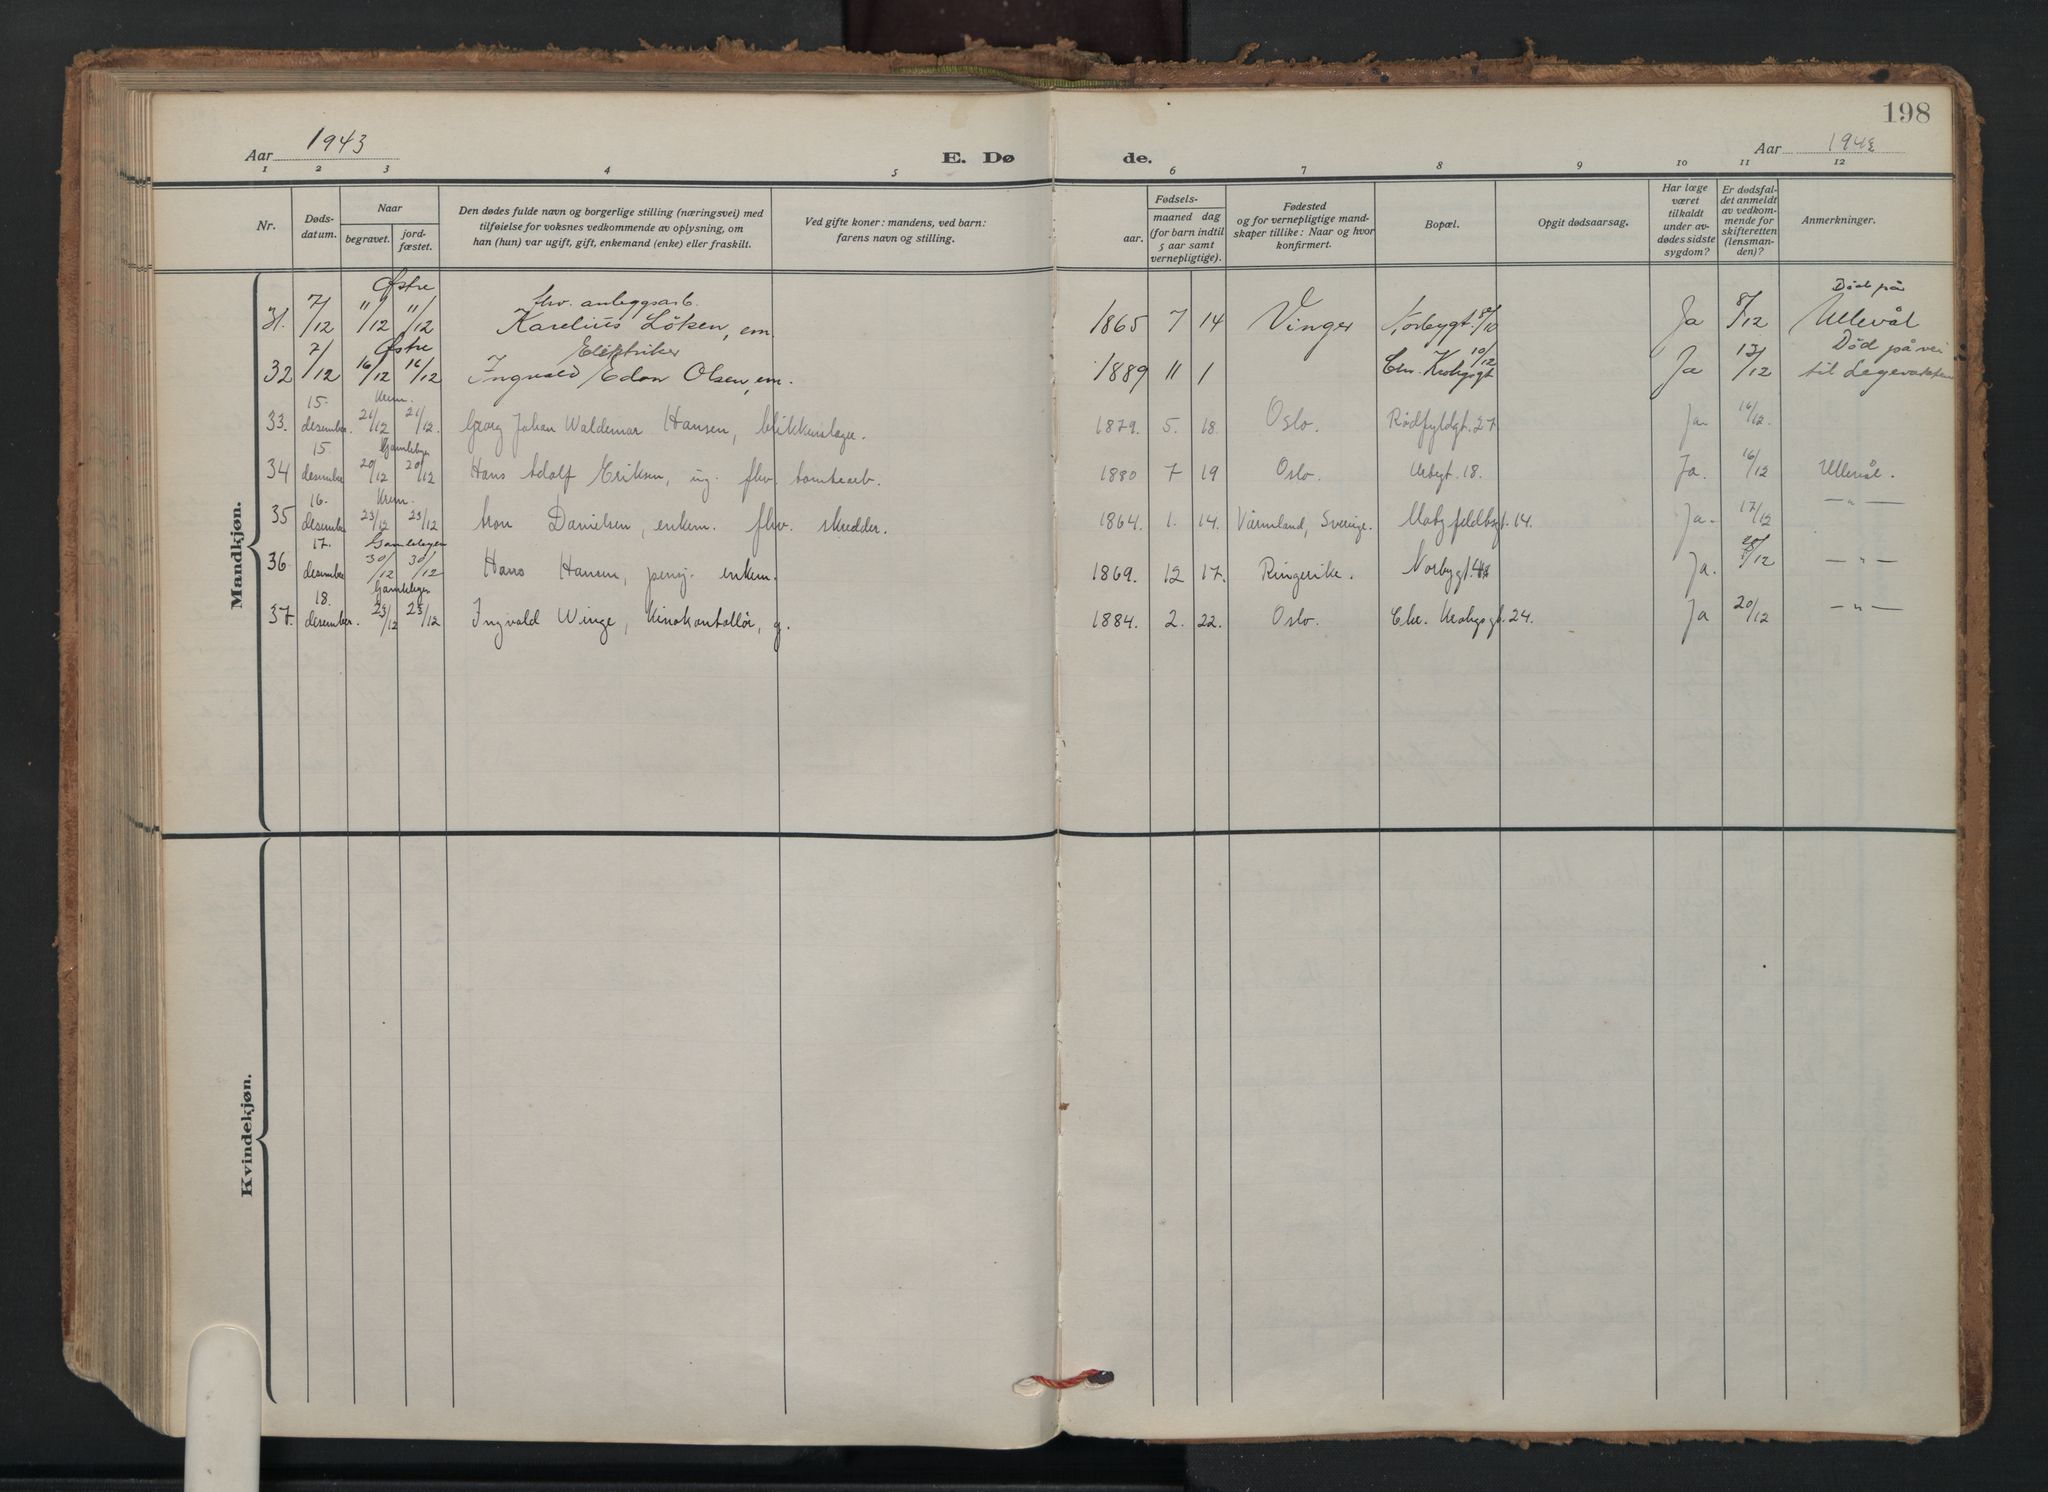 198
Aar 1943
E. Dø
de.
Aar 1943
1 2 3 4 5 6 7 8 9 10 11 12
Nr.
Døds-
datum.
Naar
begravet.
jord-
fæstet.
Den dødes fulde navn og borgerlige stilling (næringsvei) med
tilføielse for voksnes vedkommende av oplysning, om
han (hun) var ugift, gift, enkemand (enke) eller fraskilt.
Ved gifte koner: mandens, ved barn:
farens navn og stilling.
Fødsels-
aar.
maaned dag
(for barn indtil
5 aar samt
vernepligtige).
Fødested
og for vernepligtige mand-
skaper tillike: Naar og hvor
konfirmert.
Bopæl.
Opgit dødsaarsag.
Har læge
været
tilkaldt
under av-
dødes sidste
sygdom?
Er dødsfal-
det anmeldt
av vedkom-
mende for
skifteretten
(lensman-
den)?
Anmerkninger.
Mandkjøn.
Østre fhv. anleggsarb. Død på
31. 7/12 11/12 11/12 Karelius Löken, em. 1865 7 14 Vinger Norbygt. Ja 8/12 Ullevål
Østre Elektriker Død på vei
32 7/12 16/12 16/12 Ingvald Edon Olsen, em. 1889 11 1 Chr. Krohgsgt Ja 13/12 til Legevakten
15. Krem.
33. desember. 21/12 21/12. Georg Johan Waldemar Hansen, blikkenslager. 1879. 5. 18. Oslo. Rødfyldgt. 27 Ja. 16/12.
15. Gamlebyen
34 desember 20/12 20/12 Hans Adolf Eriksen, ug. fhv. tomtearb. 1880 7 19 Oslo. Urbygt. 18. Ja. 16/12 Ullevål.
16. Krem.
35 desember 23/12 23/12 Aron Danielsen, enkem. fhv. skredder. 1864. 1. 14. Värmland, Sverige. Motzfeldtsgt. 14. Ja. 17/12 — " —
17. Gamlebyen
36. desember 30/12 30/12 Hans Hansen, pensj. enkem. 1869. 12 17. Ringerike. Norbygt. Ja. 20/12 — " —
18. Gamlebyen
37. desember. 23/12 23/12 Ingvald Winge, Kinokontollör, g. 1884. 2. 22. Oslo. Chr. Krohgsgt. 24. Ja 20/12 — " —
Kvindekjøn.